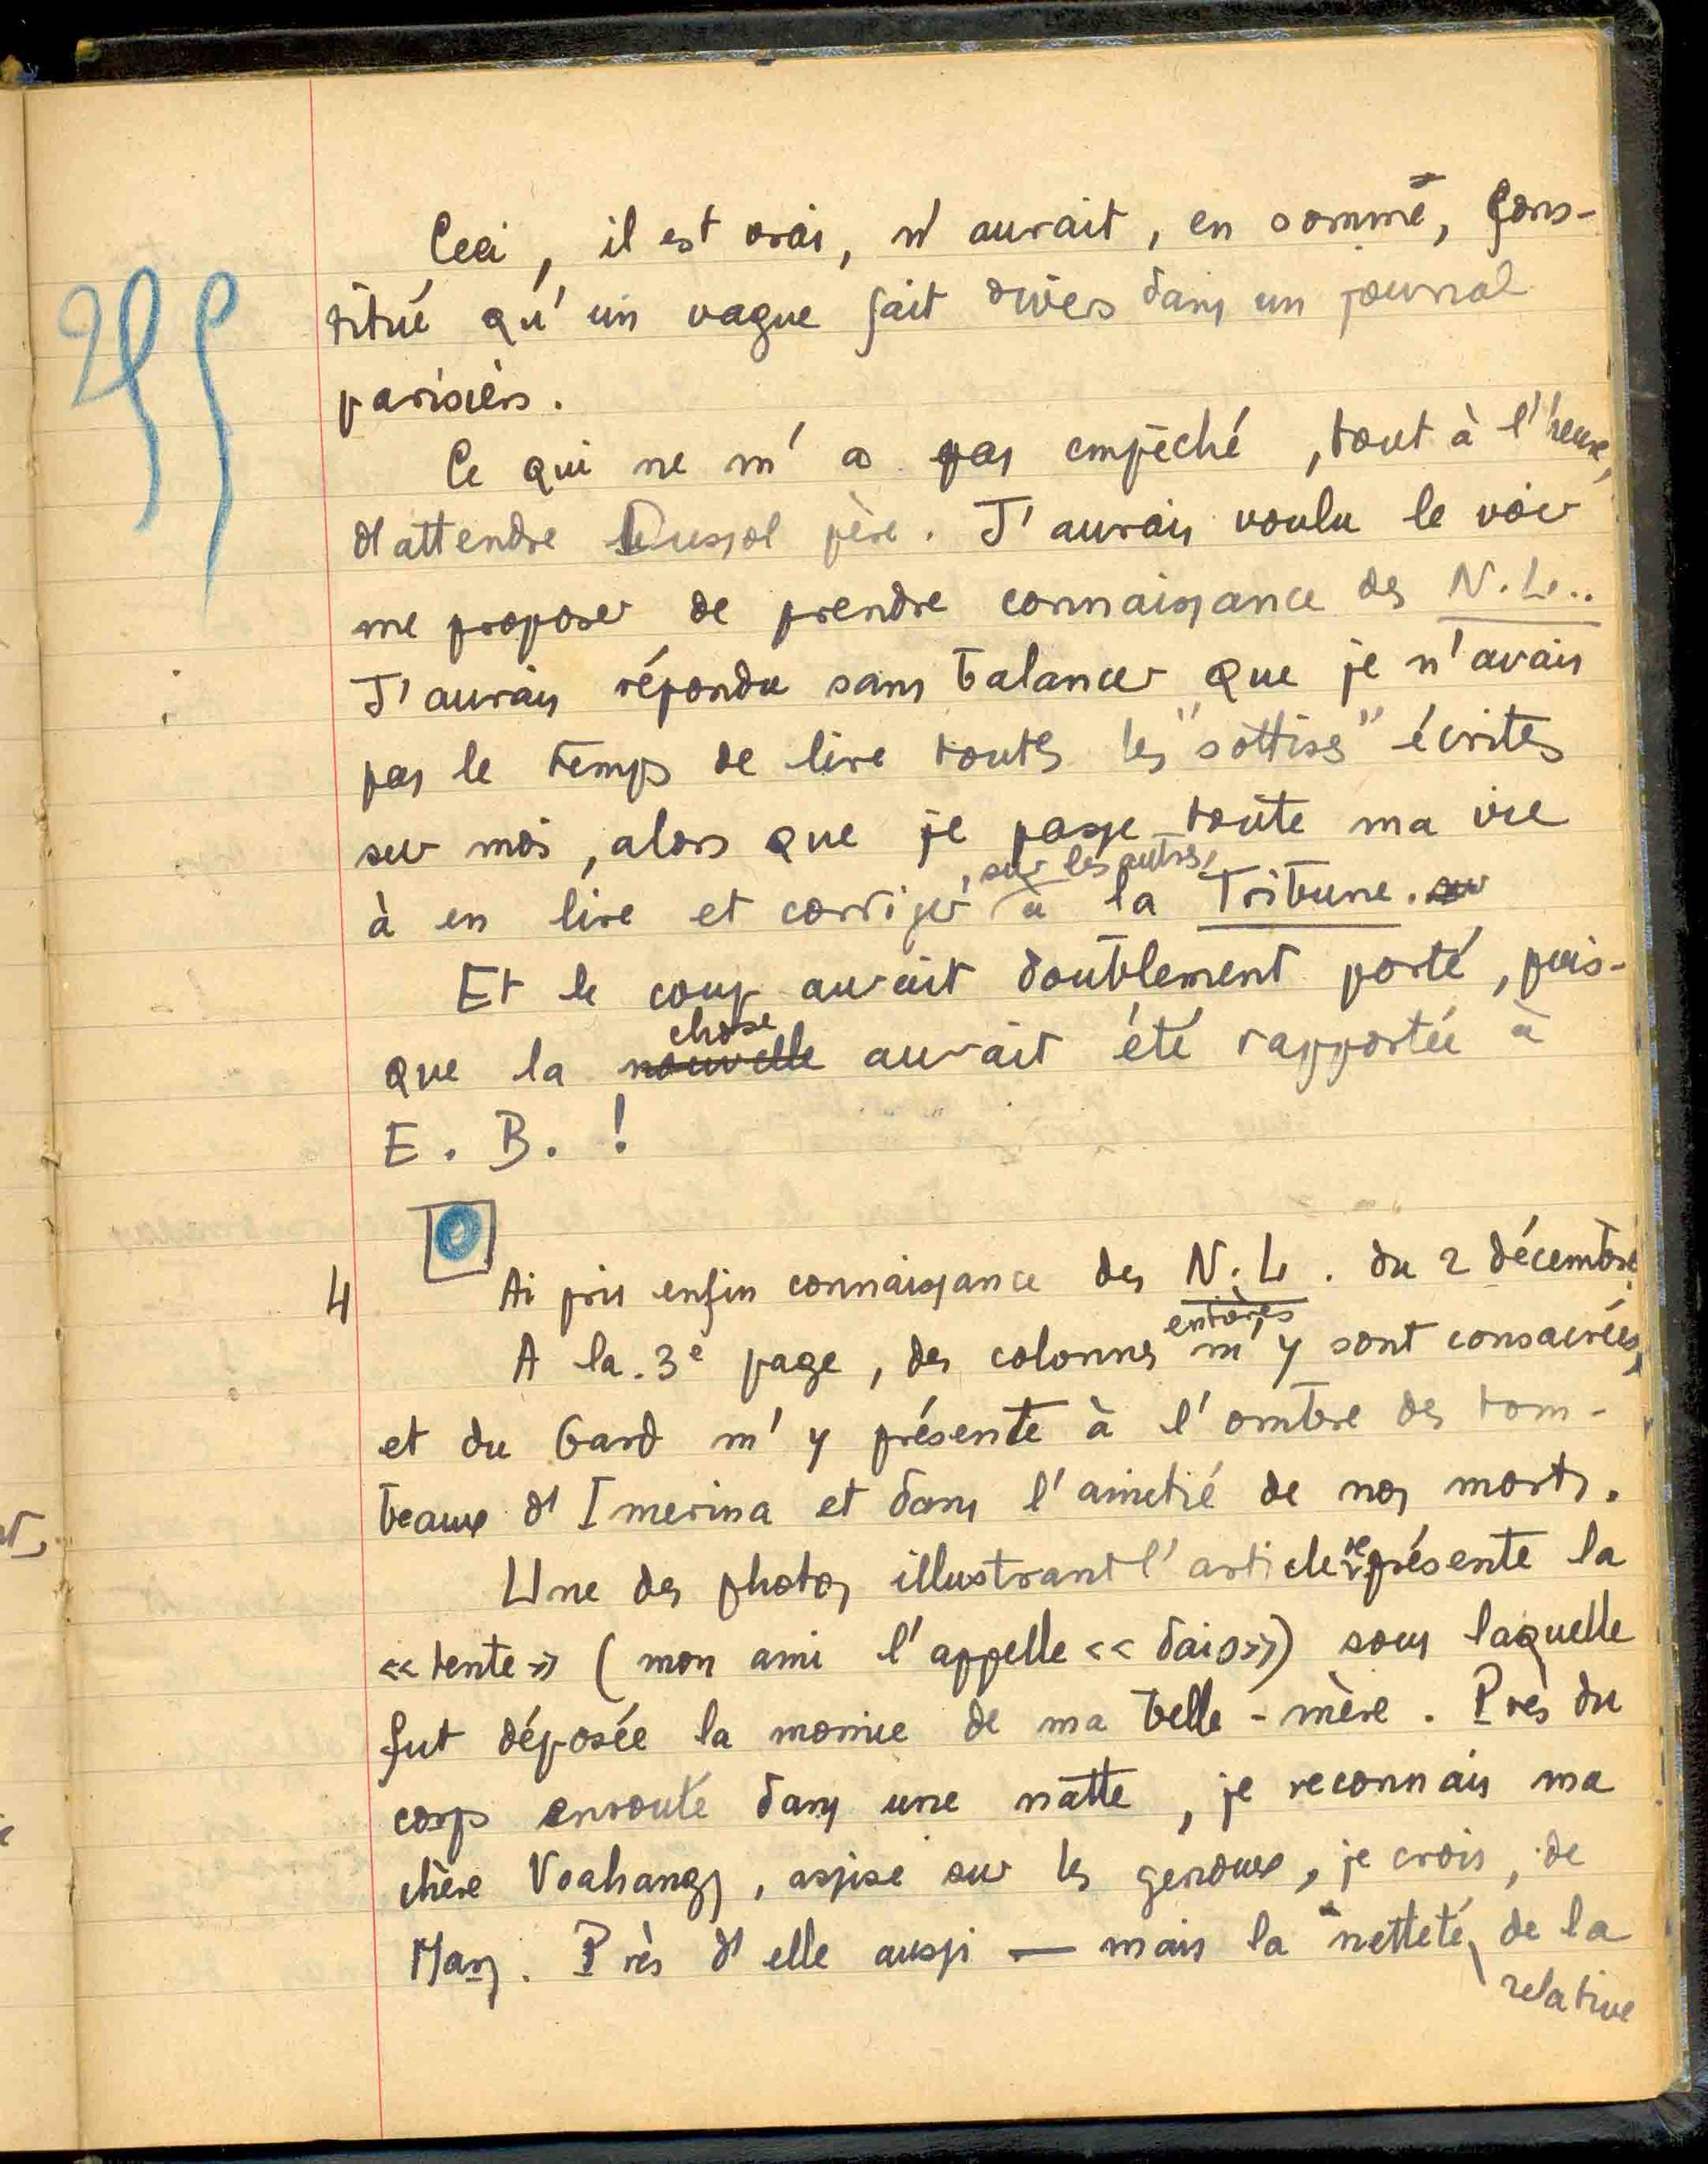 Ceci, il est vrai, n'aurait, en somme, cons-
titué qu'un vague fait divers dans un journal
parisien.
Ce qui ne m'a pas empêché, tout à l'heure,
d'attendre Dussol père. J'aurais voulu le voir
me proposer de prendre connaissance des N.L..
J'aurais répondu sans balancer que je n'avais
pas le temps de lire toutes les "sottises" écrites
sur moi, alors que je passe toute ma vie
, sur les autres,
à en lire et corriger à la Tribune.
Et le coup aurait doublement porté, puis-
chose
que la nouvelle aurait été rapportée à
E. B. !
4 Ai pris enfin connaissance des N.L. du 2 décembre.
entières
A la 3e page, des colonnes m'y sont consacrées,
et du Gard m'y présente à l'ombre des tom-
beaux d'Imerina et dans l'amitié de nos morts.
Une des photos illustrant l'article représente la
«tente» (mon ami l'appelle «dais») sous laquelle
fut déposée la momie de ma belle-mère. Près du
corps enroulé dans une natte, je reconnais ma
chère Voahangy, assise sur les genoux, je crois, de
Mary. Près d'elle aussi — mais la netteté de la
relative